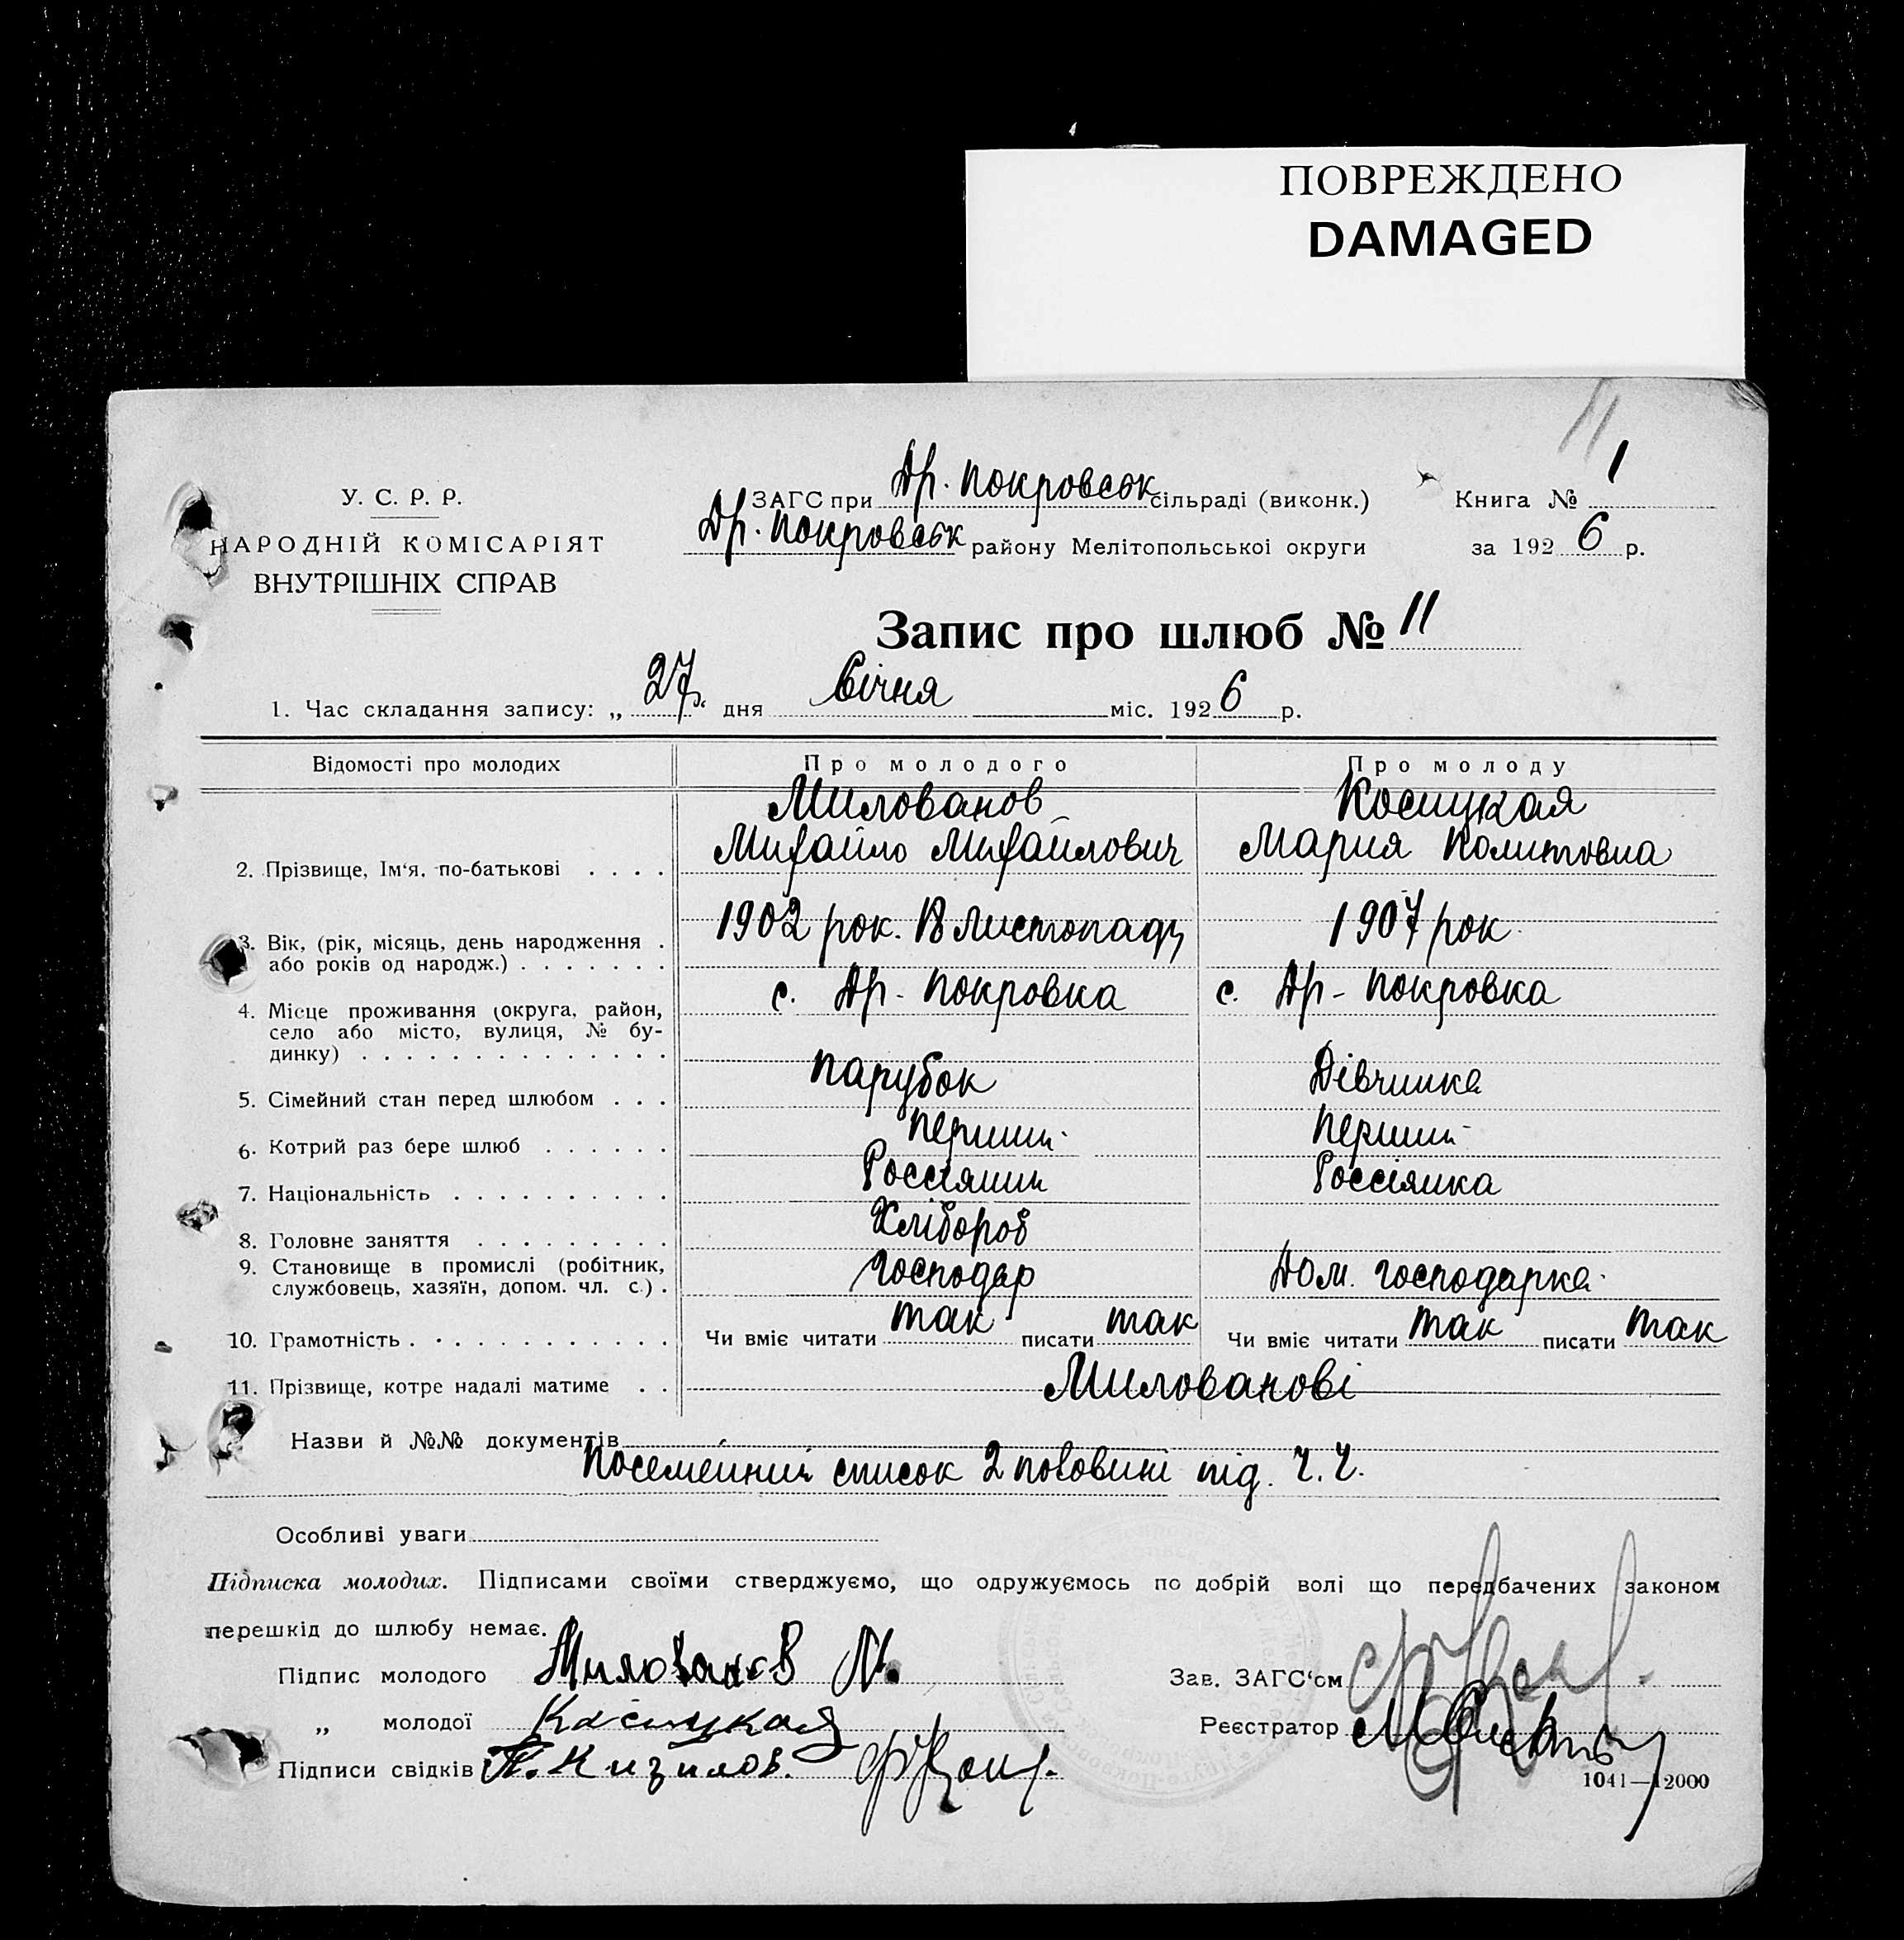 ПОВРЕЖДЕНО
DAMAGED
11
У. С. Р. Р.
НАРОДНІЙ КОМІСАРІЯТ
ВНУТРІШНІХ СПРАВ
ЗАГС при Др. Покровськ сільраді (виконк.)
Др. Покровськ району Мелітопольської округи
Книга № 1
за 1926 р.
Запис про шлюб № 11
1. Час складання запису: „ 27 дня Січня міс. 1926 р.
Відомості про молодих Про молодого Про молоду
Милованов Косицкая
2. Прізвище, Ім‘я, по-батькові . . . . Михайло Михайлович Мария
3. Вік, (рік, місяць, день народження . 1902 рок. 18 Листопаду 1907 рок
або років од народж.) . . . . . . .
4. Місце проживання (округа, район, с. Др-Покровка с. Др-Покровка
село або місто, вулиця, № бу-
динку) . . . . . . . . . . . . . .
5. Сімейний стан перед шлюбом . . . Парубок Дівчинка
6. Котрий раз бере шлюб . . . . . . Перший Перший
7. Національність . . . . . . . . . . Россіянин Россіянка
8. Головне заняття . . . . . . . . . Хлібороб
9. Становище в промислі (робітник, Господар Дом. господарка
службовець, хазяїн, допом. чл. с.) .
10. Грамотність . . . . . . . . . . . . Чи вміє читати так писати так Чи вміє читати так писати так
11. Прізвище, котре надалі матиме . . Миловановi
Назви й №№ документів
Посемейний список 2 половини під. Ч. Ч.
Особливі уваги
Підписка молодих. Підписами своїми стверджуємо, що одружуємось по добрій волі що передбачених законом
перешкід до шлюбу немає.
Підпис молодого Милованов М.
„ молодої Касицкая
Підписи свідків П. Кизилов.
Зав. ЗАГС‘ом
Реєстратор
1041—12000